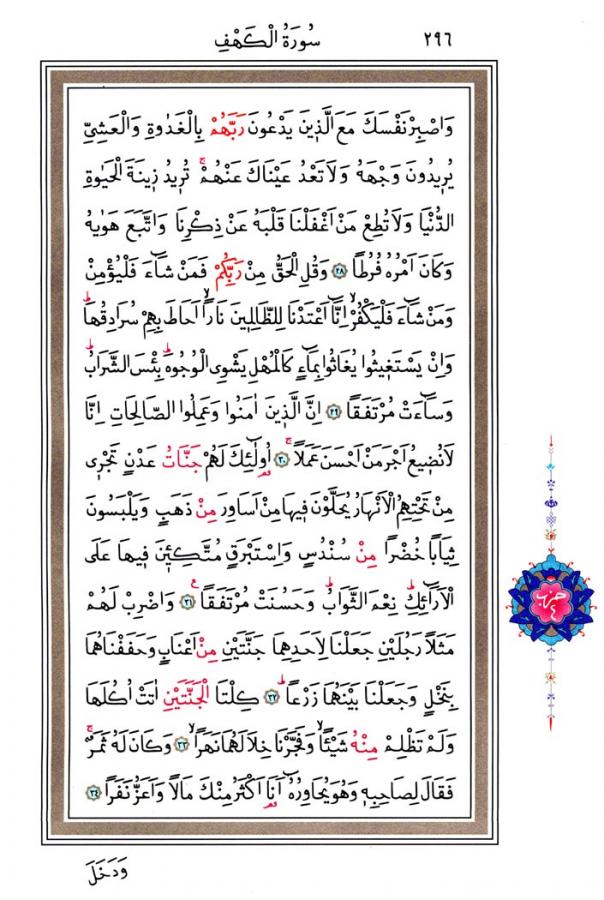 ٢٩٦
سُورَةُ الْكَهْفِ
وَاصْبِرْ نَفْسَكَ مَعَ الَّذِينَ يَدْعُونَ رَبَّهُمْ بِالْغَدٰوةِ وَالْعَشِيِّ
يُرِيدُونَ وَجْهَهُ وَلَا تَعْدُ عَيْنَاكَ عَنْهُمْۚ تُرِيدُ زِينَةَ الْحَيٰوةِ
الدُّنْيَا وَلَا تُطِعْ مَنْ اَغْفَلْنَا قَلْبَهُ عَنْ ذِكْرِنَا وَاتَّبَعَ هَوٰيهُ
وَكَانَ اَمْرُهُ فُرُطًا ٢٨ وَقُلِ الْحَقُّ مِنْ رَبِّكُمْ فَمَنْ شَٓاءَ فَلْيُؤْمِنْ
وَمَنْ شَٓاءَ فَلْيَكْفُرْۙ اِنَّٓا اَعْتَدْنَا لِلظَّالِمِينَ نَارًاۙ اَحَاطَ بِهِمْ سُرَادِقُهَاۜ
وَاِنْ يَسْتَغِيثُوا يُغَاثُوا بِمَٓاءٍ كَالْمُهْلِ يَشْوِي الْوُجُوهَۜ بِئْسَ الشَّرَابُۜ
وَسَٓاءَتْ مُرْتَفَقًا ٢٩ اِنَّ الَّذِينَ اٰمَنُوا وَعَمِلُوا الصَّالِحَاتِ اِنَّا
لَا نُضِيعُ اَجْرَ مَنْ اَحْسَنَ عَمَلًاۚ ٣٠ اُو۬لٰٓئِكَ لَهُمْ جَنَّاتُ عَدْنٍ تَجْرِي
مِنْ تَحْتِهِمُ الْاَنْهَارُ يُحَلَّوْنَ فِيهَا مِنْ اَسَاوِرَ مِنْ ذَهَبٍ وَيَلْبَسُونَ
ثِيَابًا خُضْرًا مِنْ سُنْدُسٍ وَاِسْتَبْرَقٍ مُتَّكِـِٔينَ فِيهَا عَلَى
الْاَرَٓائِكِۜ نِعْمَ الثَّوَابُۜ وَحَسُنَتْ مُرْتَفَقًا۟ ٣١ وَاضْرِبْ لَهُمْ
مَثَلًا رَجُلَيْنِ جَعَلْنَا لِاَحَدِهِمَا جَنَّتَيْنِ مِنْ اَعْنَابٍ وَحَفَفْنَاهُمَا
بِنَخْلٍ وَجَعَلْنَا بَيْنَهُمَا زَرْعًاۜ ٣٢ كِلْتَا الْجَنَّتَيْنِ اٰتَتْ اُكُلَهَا
وَلَمْ تَظْلِمْ مِنْهُ شَيْـًٔاۙ وَفَجَّرْنَا خِلَالَهُمَا نَهَرًاۙ ٣٣ وَكَانَ لَهُ ثَمَرٌۚ
فَقَالَ لِصَاحِبِهِ وَهُوَ يُحَاوِرُهُٓ اَنَا۬ اَكْثَرُ مِنْكَ مَالًا وَاَعَزُّ نَفَرًا ٣٤
وَدَخَلَ
حزب
٤